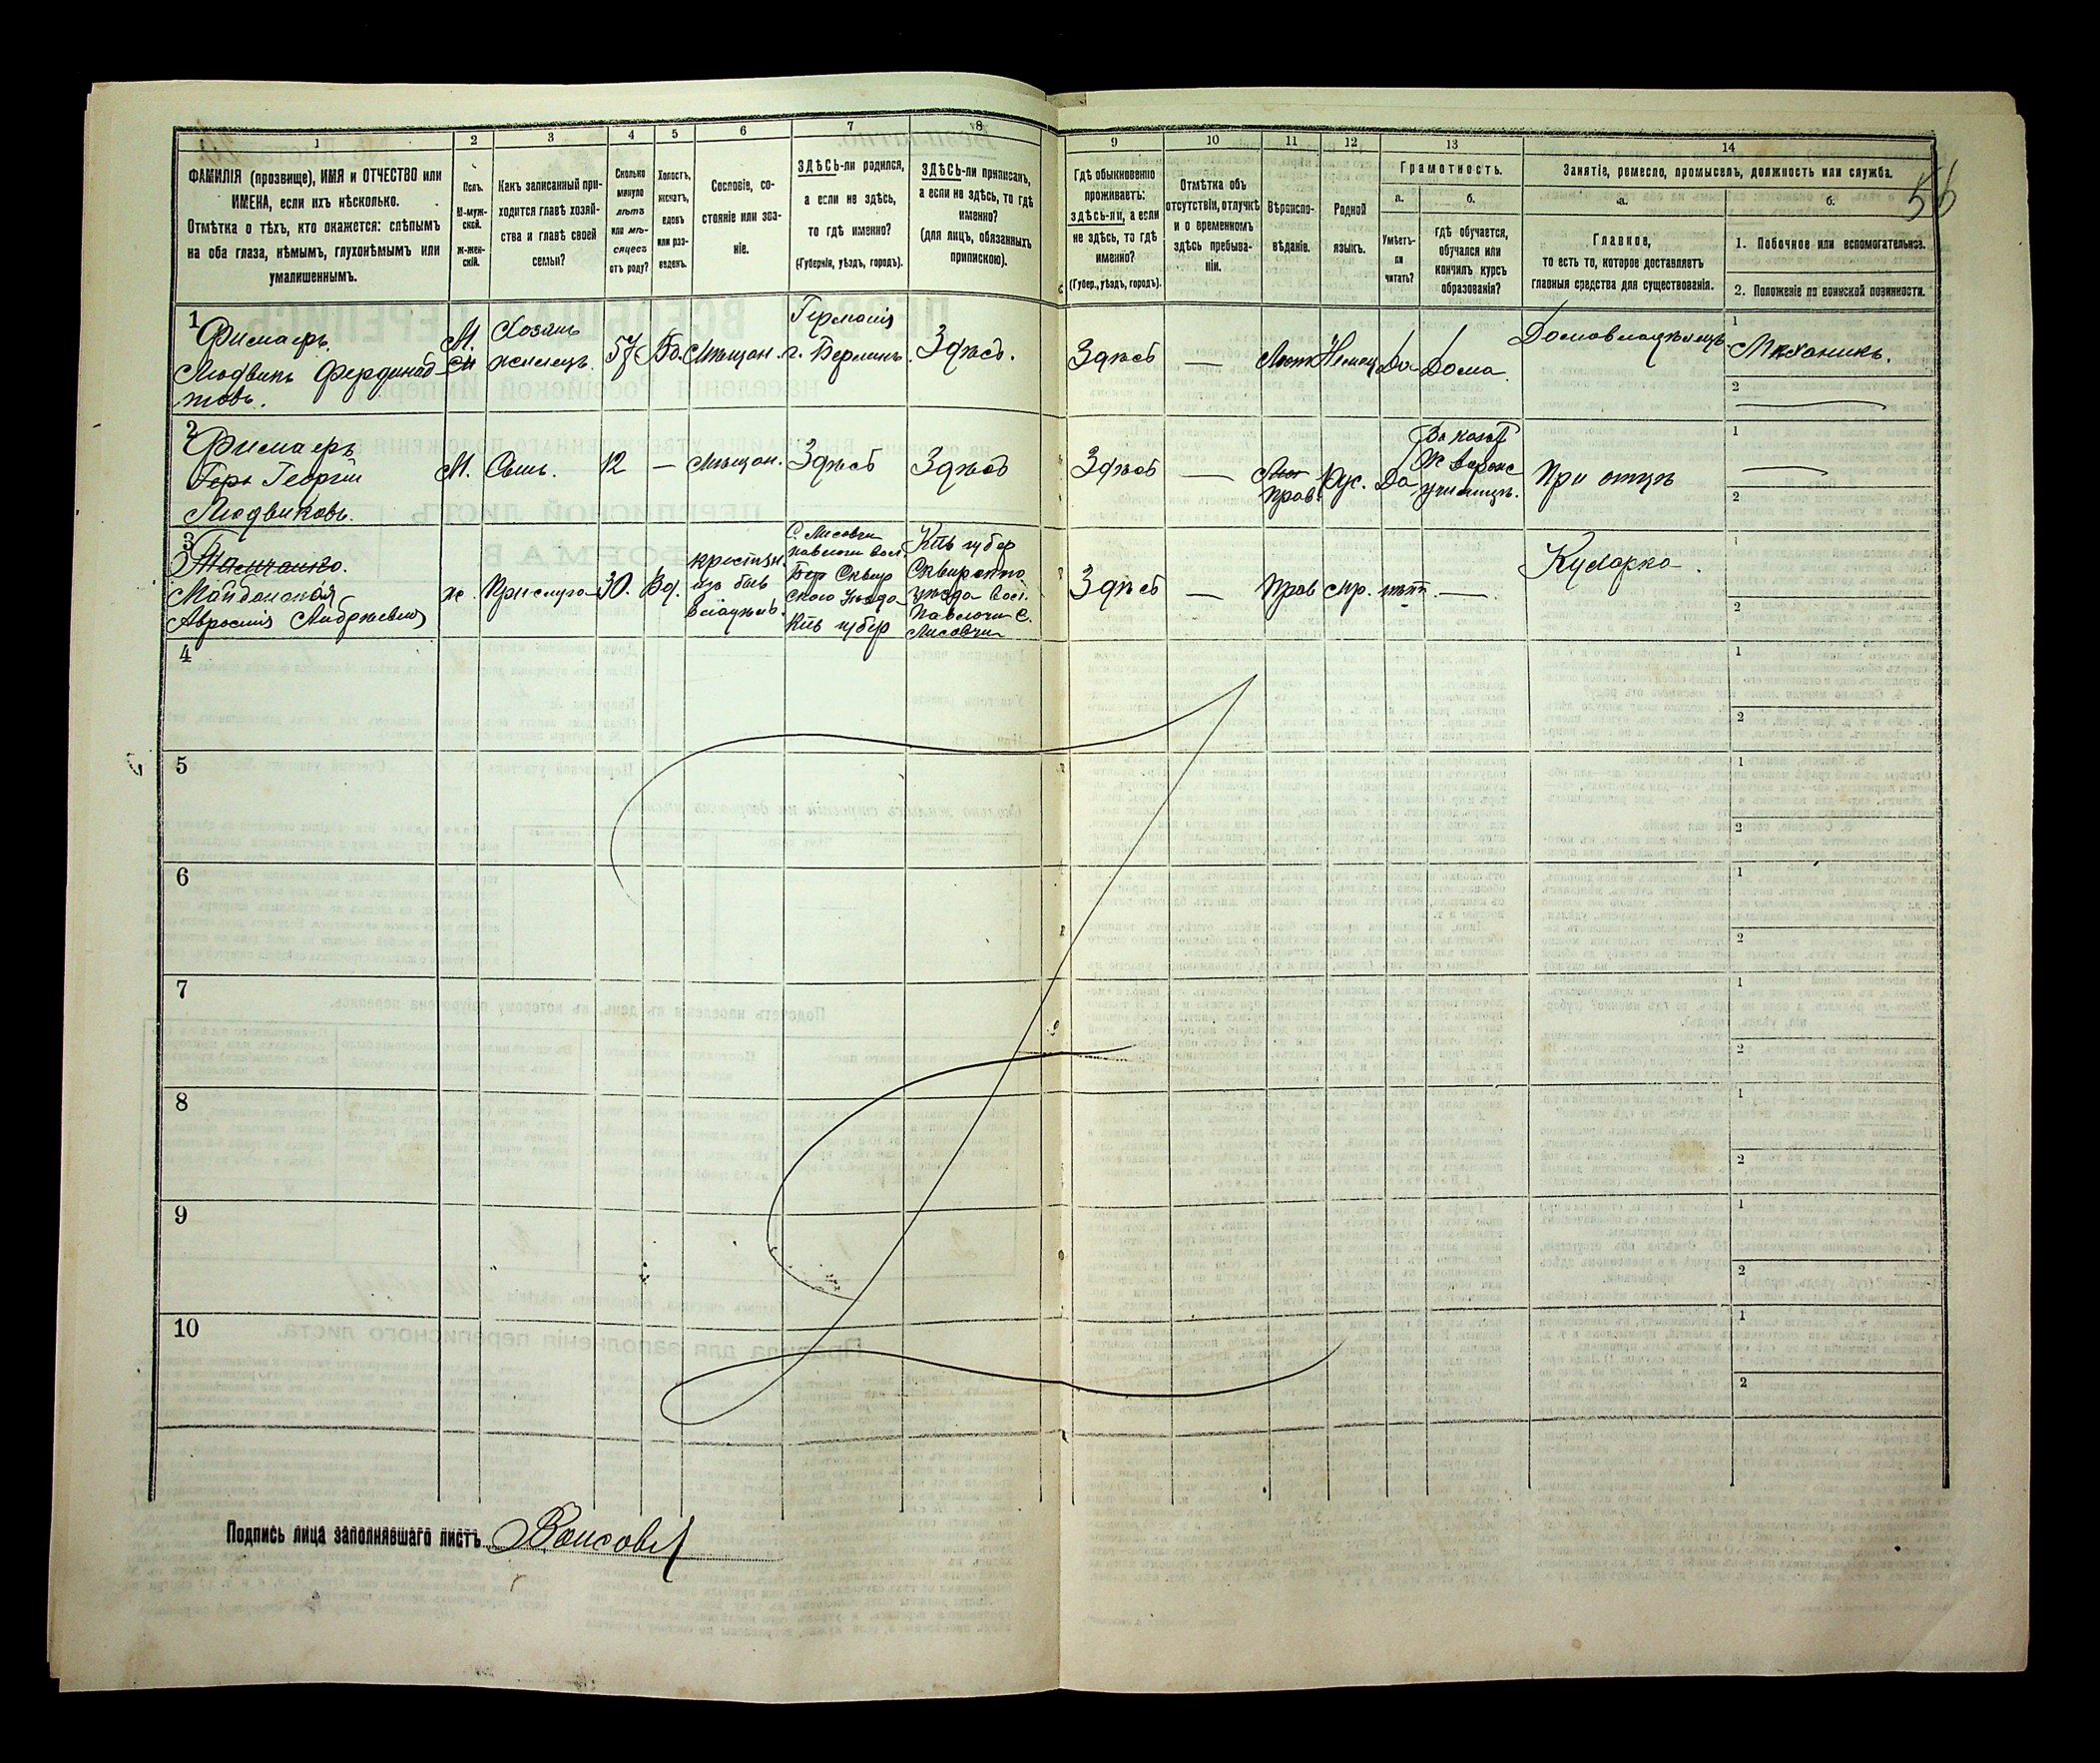 1
2
3
4
5
6
7
8
ФАМИЛІЯ (прозвище), ИМЯ и ОТЧЕСТВО или
ИМЕНА, если ихъ нѣсколько.
Отмѣтка о тѣхъ, кто окажется: слѣпымъ
на оба глаза, нѣмымъ, глухонѣмымъ или
умалишеннымъ.
Полъ.
М-муж-
ской.
Ж-жен-
скій.
Какъ записанный при-
ходится главѣ хозяй-
ства и главѣ своей
семьи?
Сколько
минуло
лѣтъ
или мѣ-
сяцевъ
отъ роду?
Холостъ,
женатъ,
вдовъ
или раз-
веденъ.
Сословіе, со-
стояніе или зва-
ніе.
ЗДѢСЬ-ли родился,
а если не здѣсь,
то гдѣ именно?
(Губернія, уѣздъ, городъ).
ЗДѢСЬ-ли приписанъ,
а если не здѣсь, то гдѣ
именно?
(для лицъ, обязанныхъ
припискою).
9
10
11
12
13
14
56
Гдѣ обыкновенно
проживаетъ:
здѣсь-ли, а если
не здѣсь, то гдѣ
именно?
(Губер., уѣздъ, городъ).
Отмѣтка объ
отсутствіи, отлучкѣ
и о временномъ
здѣсь пребыва-
ніи.
Вѣроиспо-
вѣданіе.
Родной
языкъ.
Грамотность.
а.
б.
Умѣетъ-
ли
читать?
гдѣ обучается,
обучался или
кончилъ курсъ
образованія?
Занятіе, ремесло, промыселъ, должность или служба.
а.
б.
Главное,
то есть то, которое доставляетъ
главныя средства для существованія.
1. Побочное или вспомогательное.
2. Положеніе по воинской повинности.
1
Фимаеръ.
Людвикъ Фердинад-
товъ.
М.
Хозяинъ
жилецъ.
57
Вд.
Мѣщан.
Германія
г. Берлинъ
Здѣсь.
Здѣсь
—
Лют
Немец
Да
Дома.
Домовладѣлецъ
1
Механикъ.
2
2
Фимаеръ
Георгій
Людвиковъ.
М.
Сынъ.
12
—
Мѣщан.
Здѣсь
Здѣсь
Здѣсь
—
прав.
Рус.
Да
училищѣ.
При отцѣ
1
2
3
Майданская
Андреевна
ж.
Прислуга
30.
Вд.
крестьян.
изъ быв
владѣль.
С. Лисовчи
Павлочи вол.
Бер Сквир
скаго Уѣзда
Кіев губер
Кіев губер
Сквирскто
уѣзда вол.
Павлочи С.
Лисовчи
Здѣсь
—
прав
мр.
нѣт
—
Кухарка.
1
2
4
1
2
5
1
2
6
1
2
7
1
2
8
1
2
9
1
2
10
1
2
Подпись лица заполнявшаго листъ